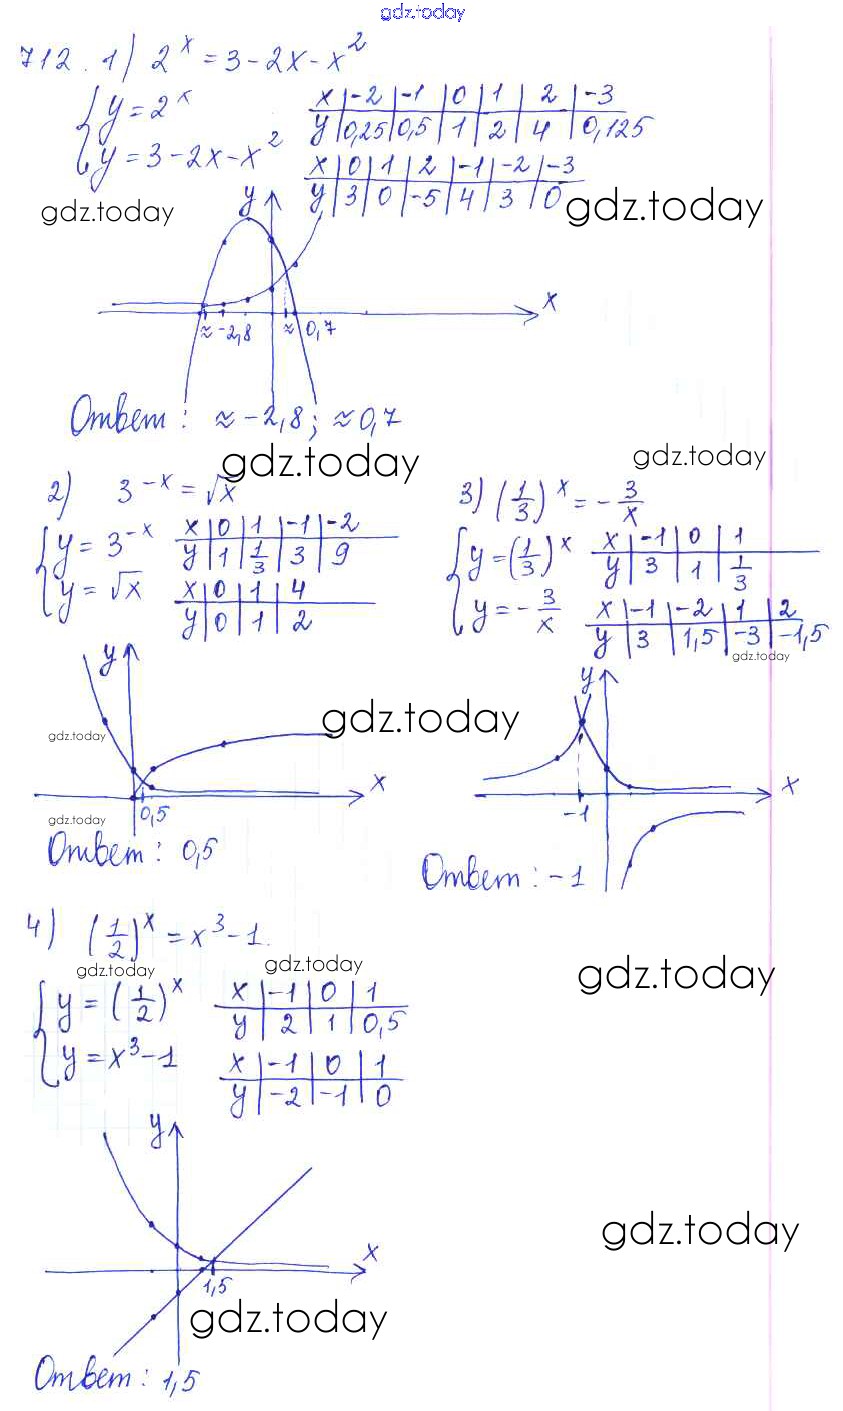 gdz.today
712. 1) 2^x = 3 - 2x - x^2
{ y = 2^x
x | -2 | -1 | 0 | 1 | 2 | -3
y | 0,25 | 0,5 | 1 | 2 | 4 | 0,125
y = 3 - 2x - x^2
x | 0 | 1 | 2 | -1 | -2 | -3
y | 3 | 0 | -5 | 4 | 3 | 0
gdz.today
gdz.today
y
x
≈ -2,8 ≈ 0,7
Ответ: ≈ -2,8; ≈ 0,7
gdz.today
gdz.today
2) 3^{-x} = √x
{ y = 3^{-x}
x | 0 | 1 | -1 | -2
y | 1 | 1/3 | 3 | 9
y = √x
x | 0 | 1 | 4
y | 0 | 1 | 2
y
gdz.today
gdz.today
x
0,5
gdz.today
Ответ: 0,5
3) (1/3)^x = -3/x
{ y = (1/3)^x
x | -1 | 0 | 1
y | 3 | 1 | 1/3
y = -3/x
x | -1 | -2 | 1 | 2
y | 3 | 1,5 | -3 | -1,5
gdz.today
y
x
-1
Ответ: -1
4) (1/2)^x = x^3 - 1.
gdz.today
gdz.today
gdz.today
{ y = (1/2)^x
x | -1 | 0 | 1
y | 2 | 1 | 0,5
y = x^3 - 1
x | -1 | 0 | 1
y | -2 | -1 | 0
y
gdz.today
x
1,5
gdz.today
Ответ: 1,5